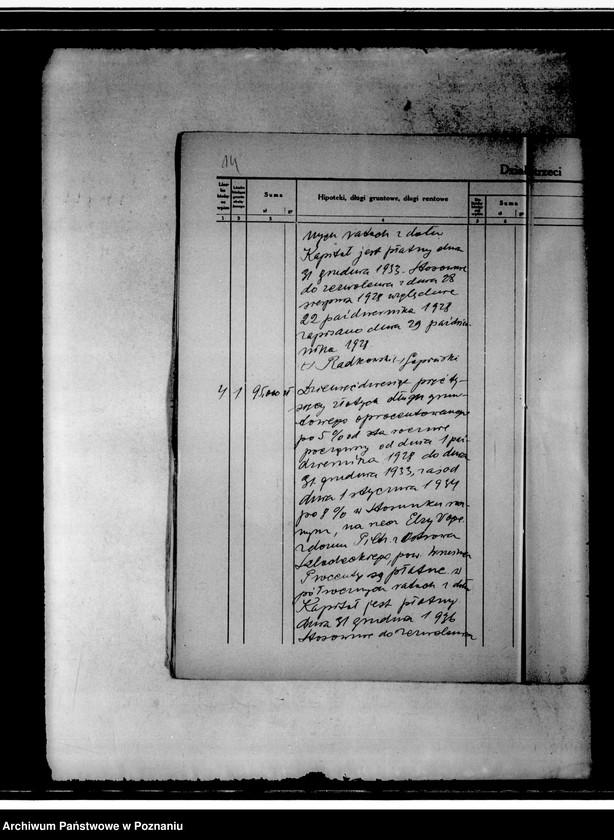 14
Dział trzeci
Suma
zł gr
Hipoteki, długi gruntowe, długi rentowe
1 2 3 4 5 6
nych ratach z dołu
Kapitał jest płatny dnia
31 grudnia 1933. Stosownie
do zezwolenia z dnia 28
sierpnia 1928 względnie
22 października 1928
zapisano dnia 29 paździer
nika 1928
Radkowski
4 1 95000 zł Dziewięćdziesiąt pięć ty-
sięcy złotych długu grun-
towego oprocentowanego
po 5% od sta rocznie
począwszy od dnia 1 paź
dziernika 1928 do dnia
31 grudnia 1933, zaś od
dnia 1 stycznia 1934
po 8% w stosunku rocz-
nym, na rzecz Elzy
z domu z Ostrowa
Szlacheckiego, pow. Września
Procenty są płatne w
półrocznych ratach z dołu
Kapitał jest płatny
dnia 31 grudnia 1936
Stosownie do zezwolenia
Archiwum Państwowe w Poznaniu